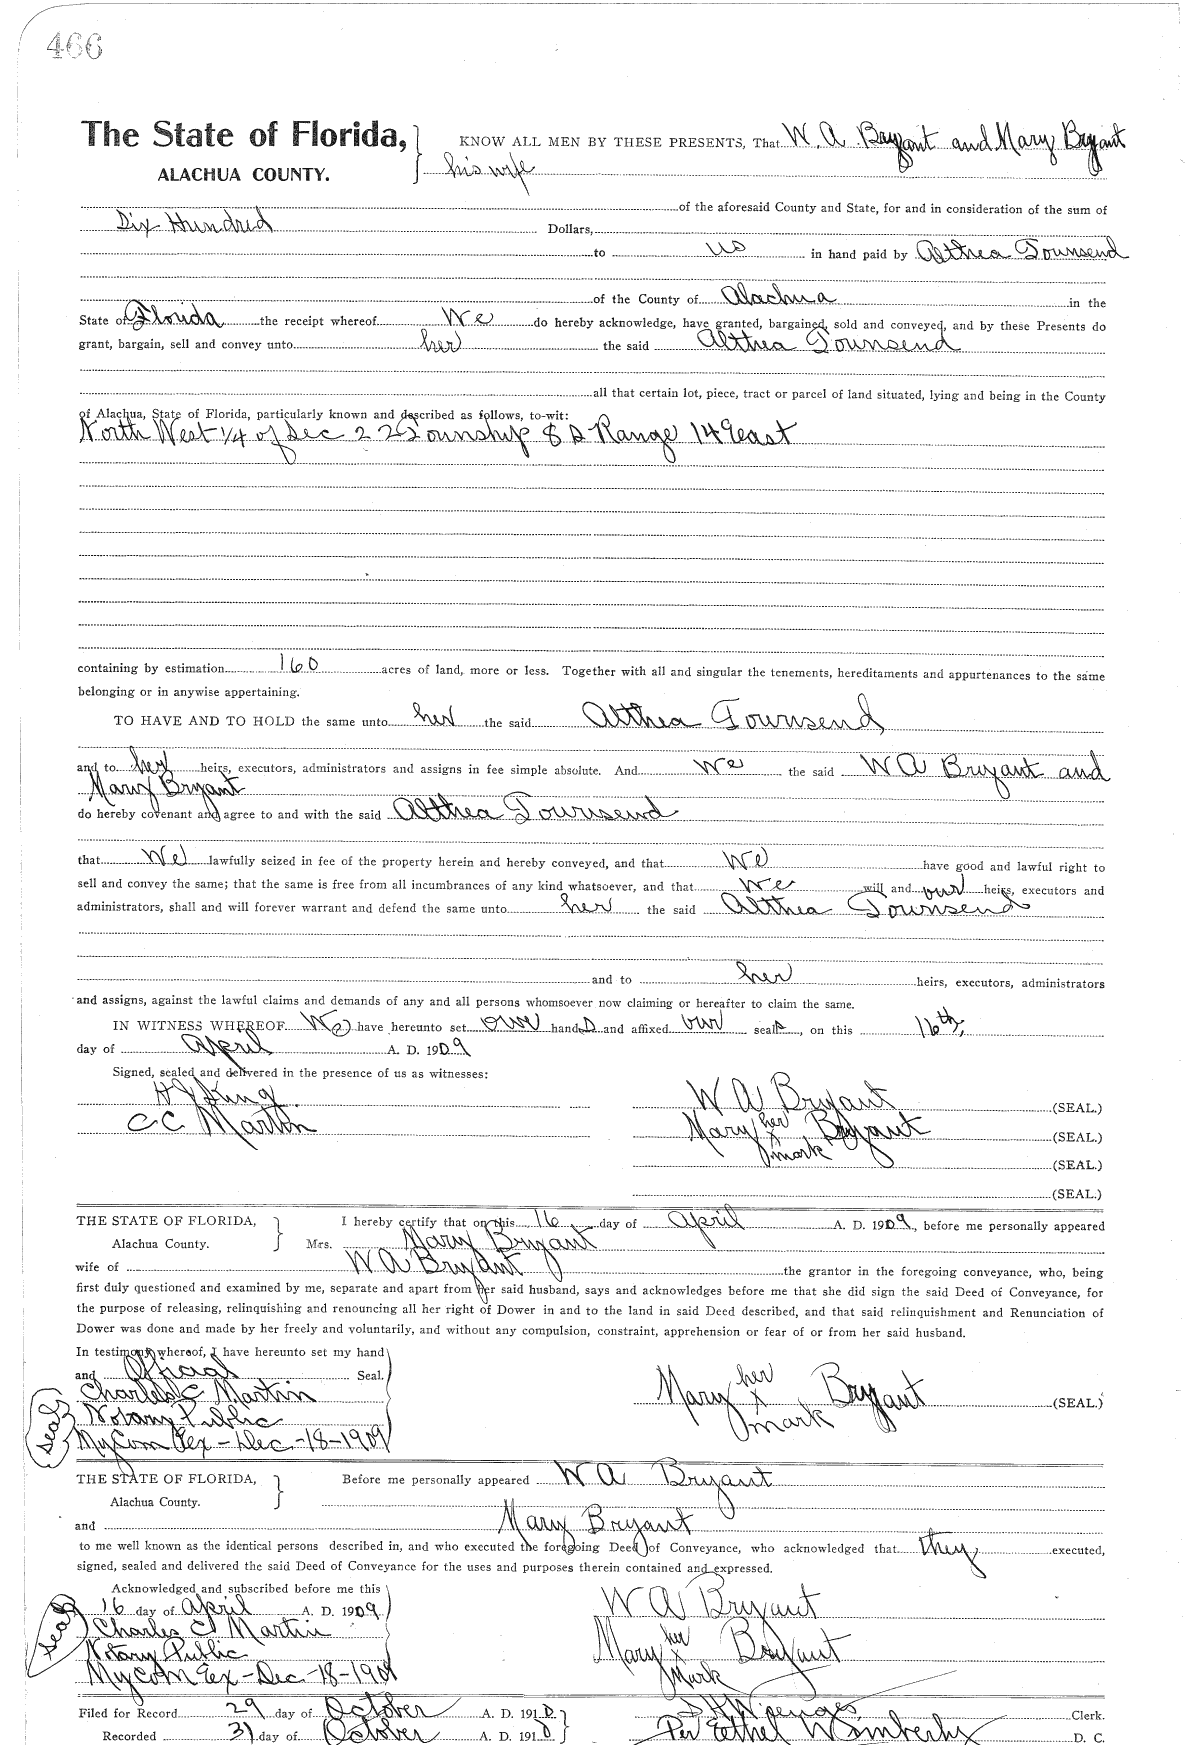 466
The State of Florida, KNOW ALL MEN BY THESE PRESENTS, That W. A Bryant and Mary Bryant
ALACHUA COUNTY. his wife
of the aforesaid County and State, for and in consideration of the sum of
Six Hundred Dollars,
to us in hand paid by Althea Townsend
of the County of Alachua in the
State of Florida the receipt whereof We do hereby acknowledge, have granted, bargained, sold and conveyed, and by these Presents do
grant, bargain, sell and convey unto her the said Althea Townsend
all that certain lot, piece, tract or parcel of land situated, lying and being in the County
of Alachua, State of Florida, particularly known and described as follows, to-wit:
North West 1/4 of Sec 22 Township 8 S Range 19 east
containing by estimation 160 acres of land, more or less. Together with all and singular the tenements, hereditaments and appurtenances to the same
belonging or in anywise appertaining.
TO HAVE AND TO HOLD the same unto her the said Althea Townsend
and to her heirs, executors, administrators and assigns in fee simple absolute. And We the said W A Bryant and
Mary Bryant
do hereby covenant and agree to and with the said Althea Townsend
that We lawfully seized in fee of the property herein and hereby conveyed, and that We have good and lawful right to
sell and convey the same; that the same is free from all incumbrances of any kind whatsoever, and that We will and our heirs, executors and
administrators, shall and will forever warrant and defend the same unto her the said Althea Townsend
and to her heirs, executors, administrators
and assigns, against the lawful claims and demands of any and all persons whomsoever now claiming or hereafter to claim the same.
IN WITNESS WHEREOF We have hereunto set our hands and affixed our seals, on this 16th,
day of April A. D. 1909
Signed, sealed and delivered in the presence of us as witnesses:
King W A Bryant (SEAL.)
C C Martin Mary her x mark Bryant (SEAL.)
(SEAL.)
(SEAL.)
THE STATE OF FLORIDA, I hereby certify that on this 16 day of April A. D. 1909, before me personally appeared
Alachua County. Mrs. Mary Bryant
wife of W A Bryant the grantor in the foregoing conveyance, who, being
first duly questioned and examined by me, separate and apart from her said husband, says and acknowledges before me that she did sign the said Deed of Conveyance, for
the purpose of releasing, relinquishing and renouncing all her right of Dower in and to the land in said Deed described, and that said relinquishment and Renunciation of
Dower was done and made by her freely and voluntarily, and without any compulsion, constraint, apprehension or fear of or from her said husband.
In testimony whereof, I have hereunto set my hand
and Official Seal.
Charles C Martin Mary her x mark Bryant (SEAL.)
Seal Notary Public
My Com Ex - Dec - 18 - 1909
THE STATE OF FLORIDA, Before me personally appeared W A Bryant
Alachua County.
and Mary Bryant
to me well known as the identical persons described in, and who executed the foregoing Deed of Conveyance, who acknowledged that they executed,
signed, sealed and delivered the said Deed of Conveyance for the uses and purposes therein contained and expressed.
Acknowledged and subscribed before me this
16 day of April A. D. 1909 W A Bryant
Seal Charles C Martin Mary her x mark Bryant
Notary Public
My Com Ex - Dec - 18 - 1909
Filed for Record 29 day of October A. D. 1910 S H Wienges Clerk.
Recorded 31 day of October A. D. 1910 Per Ethel Wimberly D. C.